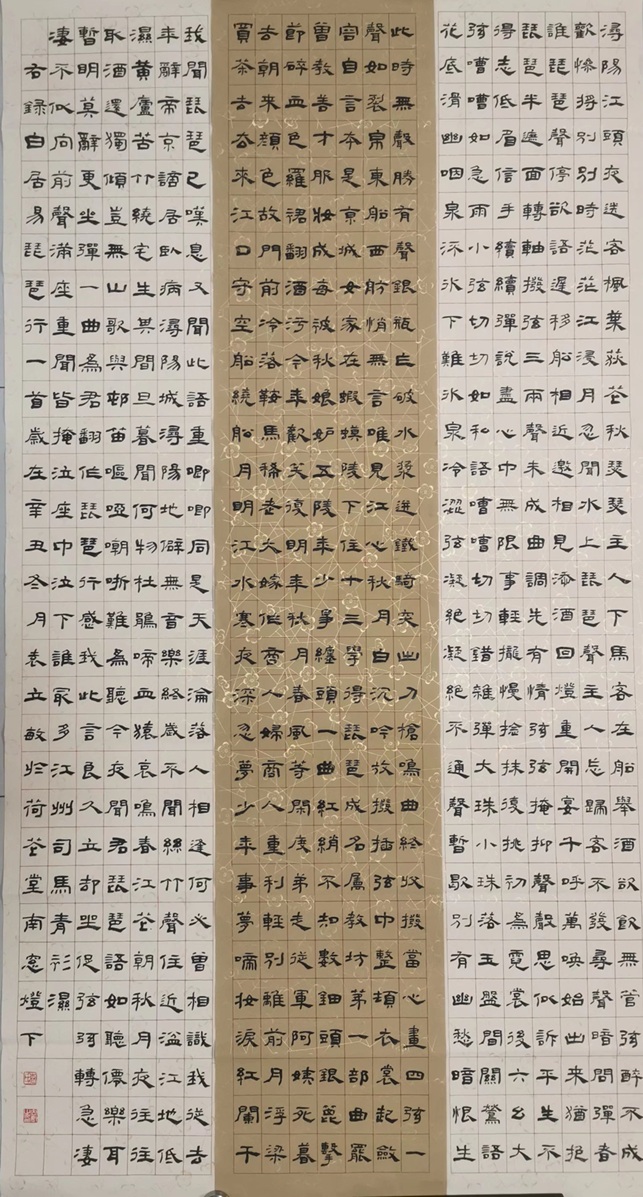 潯陽江頭夜送客楓葉荻花秋瑟瑟主人下馬客在船舉酒欲飲無管弦醉不成
歡慘將別別時茫茫江浸月忽聞水上琵琶聲主人忘歸客不發尋聲暗問彈者
誰琵琶聲停欲語遲移船相近邀相見添酒回燈重開宴千呼萬喚始出來猶抱
琵琶半遮面轉軸撥弦三兩聲未成曲調先有情弦弦掩抑聲聲思似訴平生不
得志低眉信手續續彈說盡心中無限事輕攏慢撚抹復挑初為霓裳後六幺大
弦嘈嘈如急雨小弦切切如私語嘈嘈切切錯雜彈大珠小珠落玉盤間關鶯語
花底滑幽咽泉流冰下難冰泉冷澀弦凝絕凝絕不通聲暫歇別有幽愁暗恨生
此時無聲勝有聲銀瓶乍破水漿迸鐵騎突出刀槍鳴曲終收撥當心畫四弦一
聲如裂帛東船西舫悄無言唯見江心秋月白沉吟放撥插弦中整頓衣裳起斂
容自言本是京城女家在蝦蟆陵下住十三學得琵琶成名屬教坊第一部曲罷
曾教善才服妝成每被秋娘妒五陵年少爭纏頭一曲紅綃不知數鈿頭銀篦擊
節碎血色羅裙翻酒污今年歡笑復明年秋月春風等閒度弟走從軍阿姨死暮
去朝來顏色故門前冷落鞍馬稀老大嫁作商人婦商人重利輕別離前月浮梁
買茶去去來江口守空船繞船月明江水寒夜深忽夢少年事夢啼妝淚紅闌干
我聞琵琶已嘆息又聞此語重唧唧同是天涯淪落人相逢何必曾相識我從去
年辭帝京謫居臥病潯陽城潯陽地僻無音樂終歲不聞絲竹聲住近湓江地低
濕黃蘆苦竹繞宅生其間旦暮聞何物杜鵑啼血猿哀鳴春江花朝秋月夜往往
取酒還獨傾豈無山歌與邨笛嘔啞嘲哳難為聽今夜聞君琵琶語如聽僊樂耳
暫明莫辭更坐彈一曲為君翻作琵琶行感我此言良久立卻坐促弦弦轉急淒
淒不似向前聲滿座重聞皆掩泣座中泣下誰冣多江州司馬青衫濕
右錄白居易琵琶行一首歲在辛丑冬月袁立敏於荷花堂南窗燈下